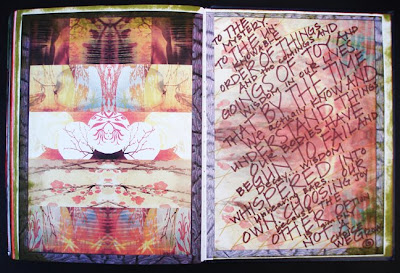 TO THE
MYSTERY.
TO THE
ORDER OF THINGS
AND THE COMINGS AND
GOINGS OF JOY TO
WISDOM IN OUR LIVES
THAT BY THE TIME
WE ACTUALLY KNOW AND
UNDERSTAND THINGS
OUR BODIES HAVE
BEGUN TO FAIL AND
WISDOM
WHISPERED INTO
UNHEARING EARS
OWN CHOOSING JOY
BECAUSE THE
OTHER OPTION
NOT